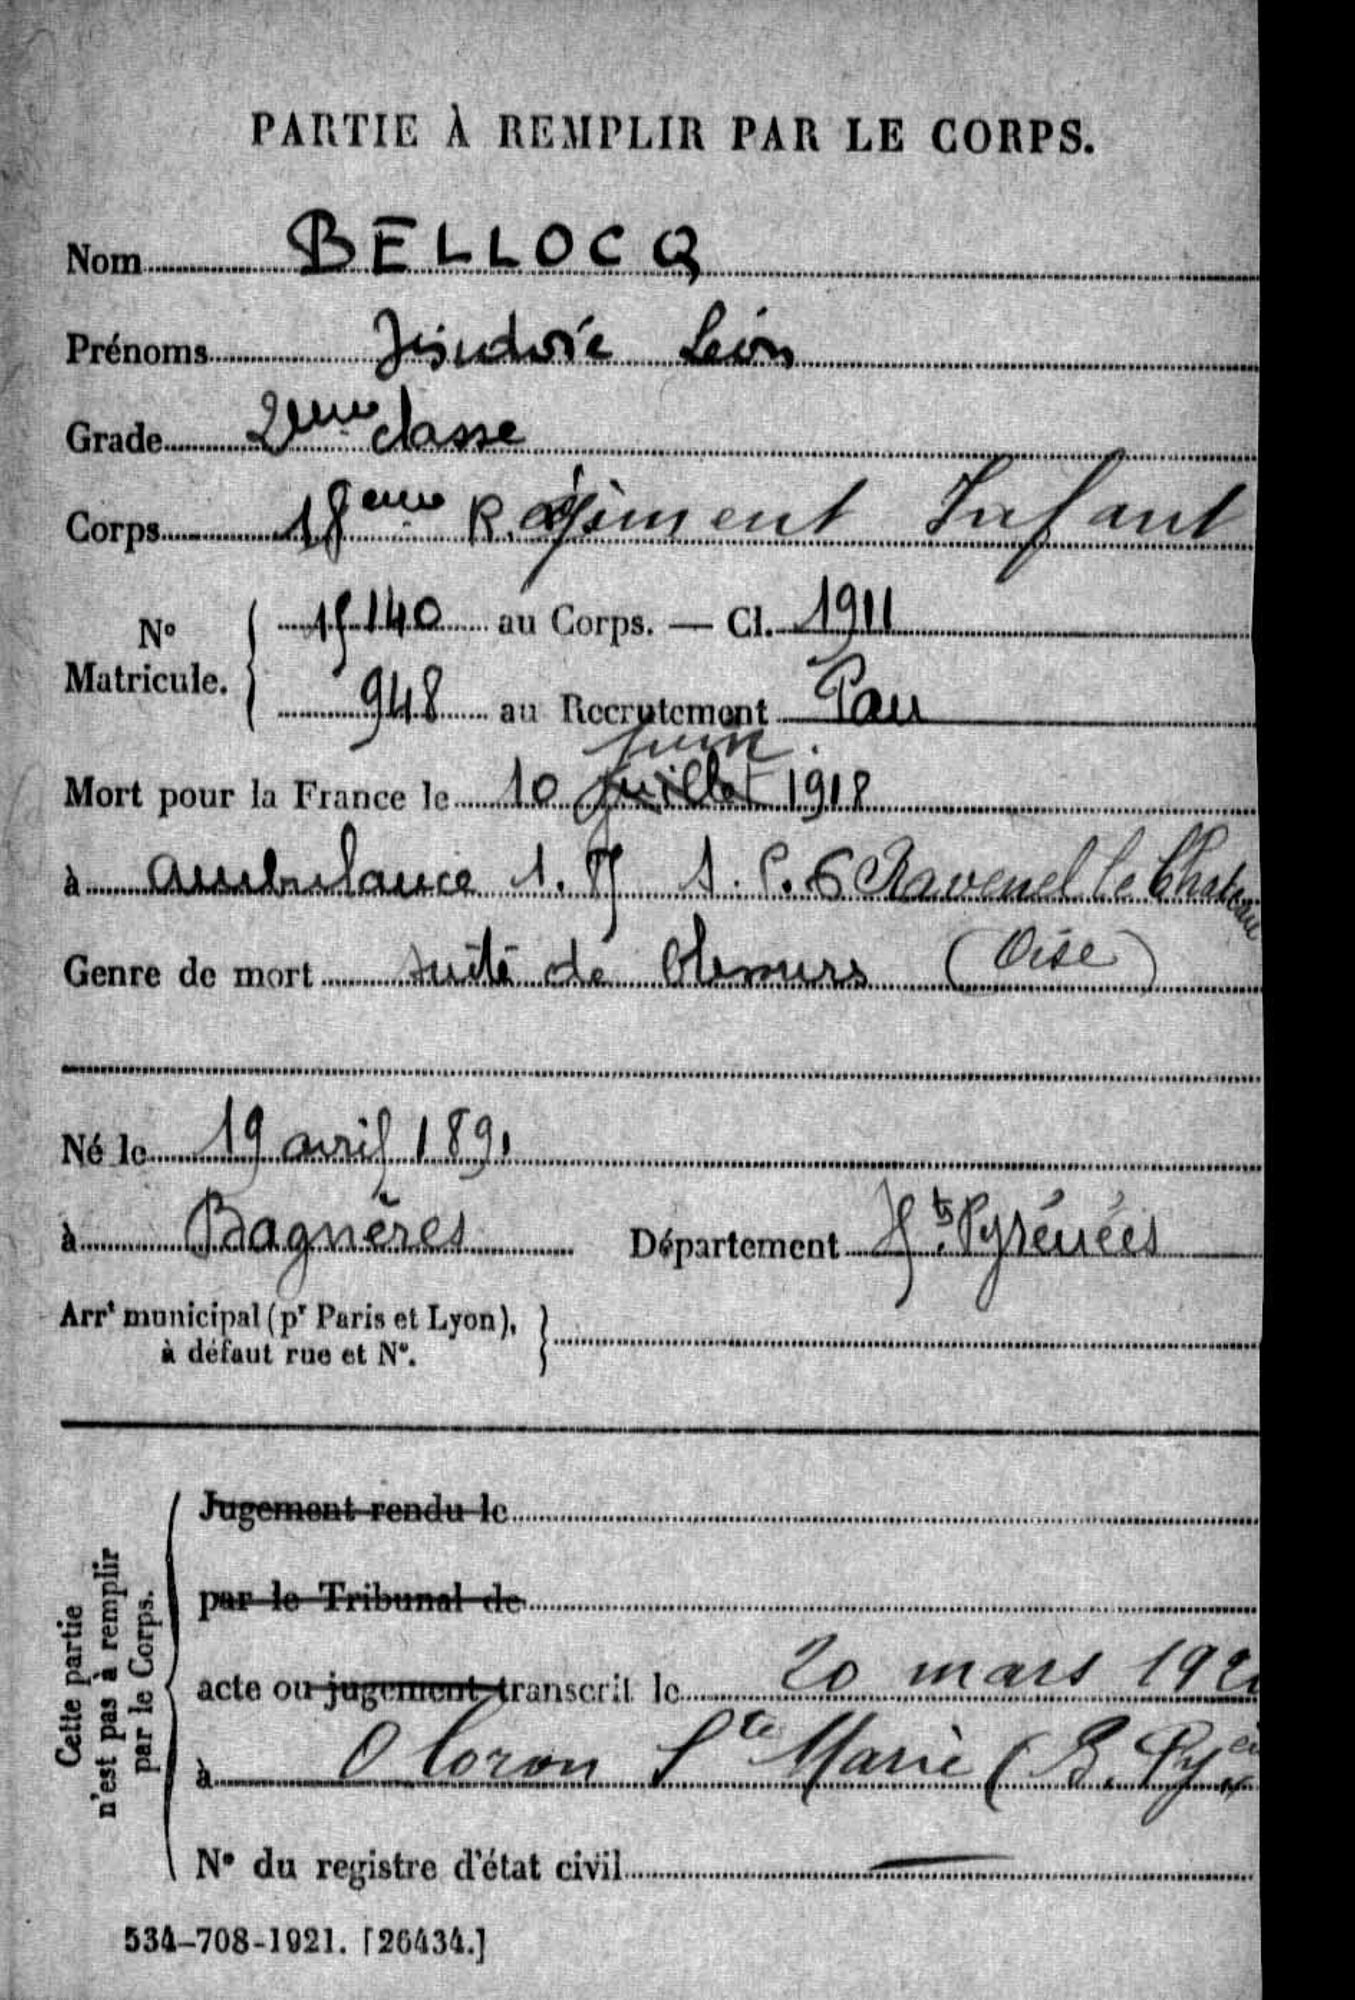 PARTIE À REMPLIR PAR LE CORPS.
Nom BELLOCQ
Prénoms Isidore Léon
Grade 2eme classe
Corps 18eme Régiment Infant
N° Matricule. 15140 au Corps. — Cl. 1911
948 au Recrutement Pau
juin
Mort pour la France le 10 juillet 1918
à ambulance 1. S.P. 6 Ravenel le Chateau
Genre de mort suite de blessures (Oise)
Né le 19 avril 1891
à Bagnères Département Htes Pyrénées
Arrt municipal (pr Paris et Lyon),
à défaut rue et N°.
Cette partie
n'est pas à remplir
par le Corps.
Jugement rendu le
par le Tribunal de
acte ou jugement transcrit le 20 mars 192
à Oloron Ste Marie (B. Py
N° du registre d'état civil —
534-708-1921. [26434.]